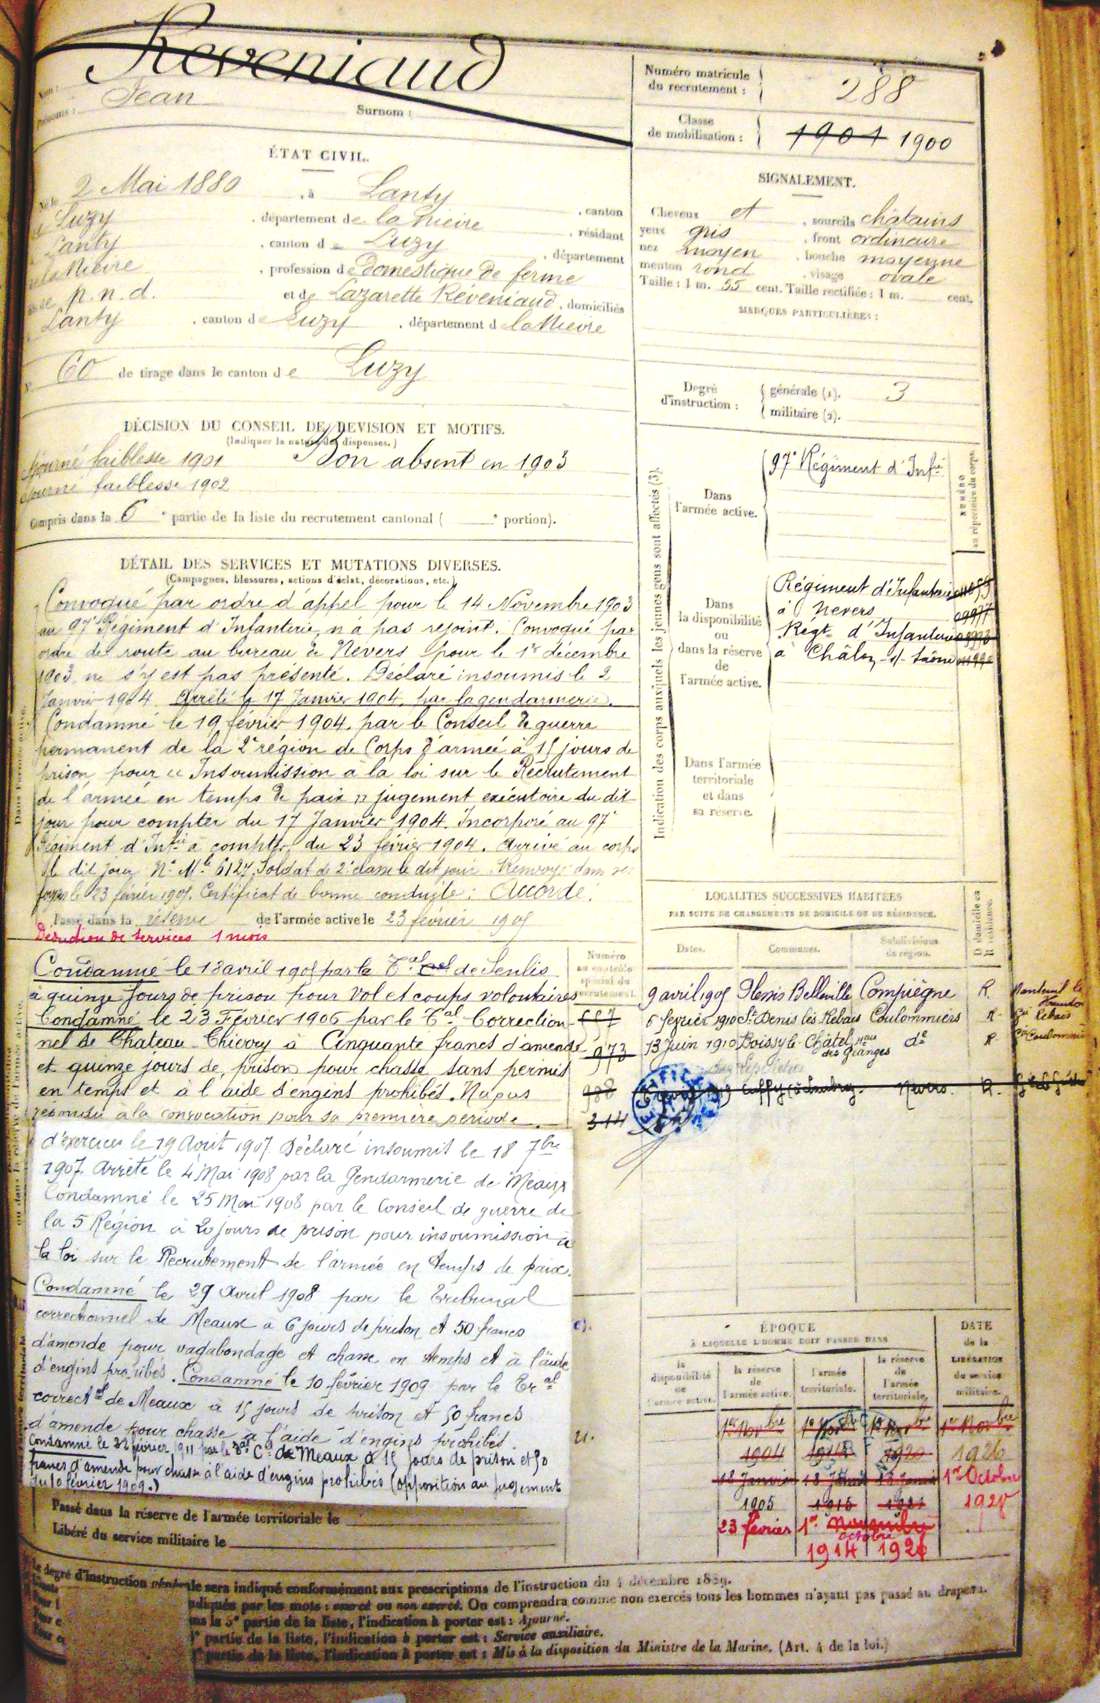 Nom : Reveniaud
Prénoms : Jean Surnom :
ÉTAT CIVIL.
Né le 2 Mai 1880 , à Lanty , canton
de Luzy , département de la Nièvre , résidant
Lanty , canton d e Luzy , département
de la Nièvre , profession de domestique de ferme
p. n. d. et de Lazarette Réveniaud , domiciliés
Lanty , canton de Luzy , département d la Nièvre
N° 60 de tirage dans le canton d e Luzy
DÉCISION DU CONSEIL DE REVISION ET MOTIFS.
(Indiquer la nature des dispenses.)
Ajourné faiblesse 1901 Bon absent en 1903
Ajourné faiblesse 1902
Compris dans la 6 e partie de la liste du recrutement cantonal ( e portion).
DÉTAIL DES SERVICES ET MUTATIONS DIVERSES.
(Campagnes, blessures, actions d'éclat, décorations, etc.)
Convoqué par ordre d'appel pour le 14 Novembre 1903
au 97e Régiment d'Infanterie, n'a pas rejoint. Convoqué par
ordre de route au bureau de Nevers pour le 1er décembre
1903, ne s'y est pas présenté. Déclaré insoumis le 2
Janvier 1904. Arrêté le 17 Janvier 1904, par la gendarmerie.
Condamné le 19 février 1904, par le Conseil de guerre
permanent de la 2e région de Corps d'armée à 15 jours de
prison, pour " Insoumission à la loi sur le Recrutement
de l'armée en temps de paix " jugement exécutoire du dit
jour pour compter du 17 Janvier 1904. Incorporé au 97e
Régiment d'Infie à compter du 23 février 1904. Arrivé au corps
le dit jour N° Mle 6127, Soldat de 2e classe le dit jour. Renvoyé dans ses
foyers le 23 février 1905. Certificat de bonne conduite : Accordé.
Passé dans la réserve de l'armée active le 23 février 1905
Déduction de services 1 mois
Condamné le 18 avril 1905 par le Tal de Senlis
à quinze jours de prison pour vol et coups volontaires
Condamné le 23 Février 1906 par le Tal Correction-
nel de Chateau-Thierry à Cinquante francs d'amende
et quinze jours de prison pour chasse sans permis
en temps et à l'aide d'engins prohibés. N'a pas
répondu à la convocation pour sa première période
d'exercices le 19 Août 1907. Déclaré insoumis le 18 7bre
1907 Arrêté le 4 Mai 1908 par la Gendarmerie de Meaux
Condamné le 25 Mai 1908 par le Conseil de guerre de
la 5 Région à 20 jours de prison pour insoumission à
la loi sur le Recrutement de l'armée en temps de paix.
Condamné le 29 Avril 1908 par le Tribunal
correctionnel de Meaux à 6 jours de prison et 50 francs
d'amende pour vagabondage et chasse en temps et à l'aide
d'engins prohibés. Condamné le 10 février 1909 par le Tral
correctel de Meaux à 15 jours de prison et 50 francs
d'amende pour chasse à l'aide d'engins prohibés
Condamné le 22 février 1911 par le Tal Cel de Meaux à 15 jours de prison et 50
francs d'amende pour chasse à l'aide d'engins prohibés (opposition au jugement
du 10 février 1909.)
Passé dans la réserve de l'armée territoriale le
Libéré du service militaire le
Numéro matricule du recrutement : 288
Classe de mobilisation : 1901 1900
SIGNALEMENT.
Cheveux et , sourcils châtains
yeux gris , front ordinaire
nez moyen , bouche moyenne
menton rond , visage ovale
Taille : 1 m. 55 cent. Taille rectifiée : 1 m. cent.
MARQUES PARTICULIÈRES :
Degré d'instruction : générale (1). 3
militaire (2).
Indication des corps auxquels les jeunes gens sont affectés (3).
NUMÉRO au répertoire du corps.
Dans l'armée active.
97e Régiment d'Infie
Dans la disponibilité ou dans la réserve de l'armée active.
Régiment d'Infanterie
à Nevers
Régt d'Infanterie
à Châlon s/ Saône
Dans l'armée territoriale et dans sa réserve.
Numéro au contrôle spécial du recrutement.
557
973
988
344
LOCALITÉS SUCCESSIVES HABITÉES
PAR SUITE DE CHANGEMENTS DE DOMICILE OU DE RÉSIDENCE.
Dates. Communes. Subdivisions de région. D domicile ou R résidence.
9 avril 1905 Plessis Belleville Compiègne R. Nanteuil le
6 février 1910 St Denis les Rebais Coulommiers R. Rebais
13 Juin 1910 Boissy le Chatel do R Coulommiers
des Granges
Cuffy Nevers. R.
ÉPOQUE
À LAQUELLE L'HOMME DOIT PASSER DANS
DATE de la LIBÉRATION du service militaire.
la disponibilité de l'armée active. la réserve de l'armée active. l'armée territoriale. la réserve de l'armée territoriale.
1er Novbre 1er Novbre 1er Novbre 1er Novbre
1904 1914 1920 1926
18 Janvier 18 Janvier 18 Janvier 1er Octobre
1905 1915 1921 1928
23 février 1er Novembre
octobre
1914 1920
Le degré d'instruction générale sera indiqué conformément aux prescriptions de l'instruction du 4 décembre 1889.
indiqués par les mots : exercé ou non exercé. On comprendra comme non exercés tous les hommes n'ayant pas passé au drapeau.
dans la 5e partie de la liste, l'indication à porter est : Ajourné.
partie de la liste, l'indication à porter est : Service auxiliaire.
partie de la liste, l'indication à porter est : Mis à la disposition du Ministre de la Marine. (Art. 4 de la loi.)